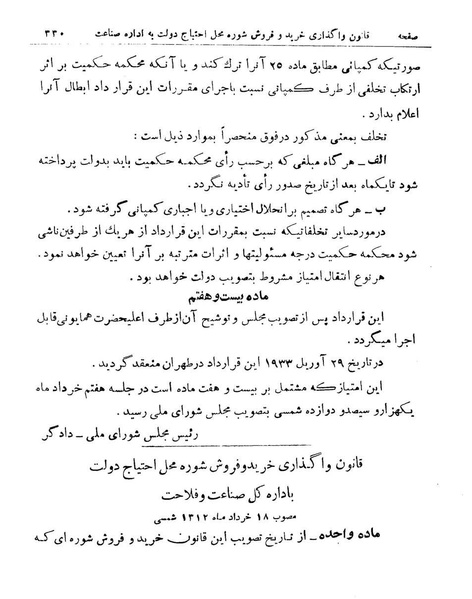 صفحه قانون واگذاری خرید و فروش شوره محل احتیاج دولت به اداره صناعت ۳۳۰
صورتیکه کمپانی مطابق ماده ۲۵ آنرا ترك کند و یا آنکه محکمه حکمیت بر اثر
ارتکاب تخلفی از طرف کمپانی نسبت باجرای مقررات این قرار داد ابطال آنرا
اعلام بدارد .
تخلف بمعنی مذکور درفوق منحصراً بموارد ذیل است :
الف ـ هرگاه مبلغی که برحسب رأی محکمه حکمیت باید بدولت پرداخته
شود تایکماه بعد از تاریخ صدور رأی تأدیه نگردد .
ب ـ هرگاه تصمیم بر انحلال اختیاری و یا اجباری کمپانی گرفته شود .
درمورد سایر تخلفاتیکه نسبت بمقررات این قرارداد از هریك از طرفین ناشی
شود محکمه حکمیت درجه مسئولیتها و اثرات مترتبه بر آنرا تعیین خواهد نمود .
هرنوع انتقال امتیاز مشروط بتصویب دولت خواهد بود .
ماده بیست و هفتم
این قرارداد پس از تصویب مجلس و توشیح آن از طرف اعلیحضرت همایونی قابل
اجرا میگردد .
در تاریخ ۲۹ آوریل ۱۹۳۳ این قرارداد درطهران منعقد گردید .
این امتیازکه مشتمل بر بیست و هفت ماده است در جلسه هفتم خرداد ماه
یکهزار و سیصد و دوازده شمسی بتصویب مجلس شورای ملی رسید .
رئیس مجلس شورای ملی ـ دادگر
قانون واگذاری خرید و فروش شوره محل احتیاج دولت
باداره کل صناعت و فلاحت
مصوب ۱۸ خرداد ماه ۱۳۱۲ شمسی
ماده واحده ـ از تاریخ تصویب این قانون خرید و فروش شوره ای که